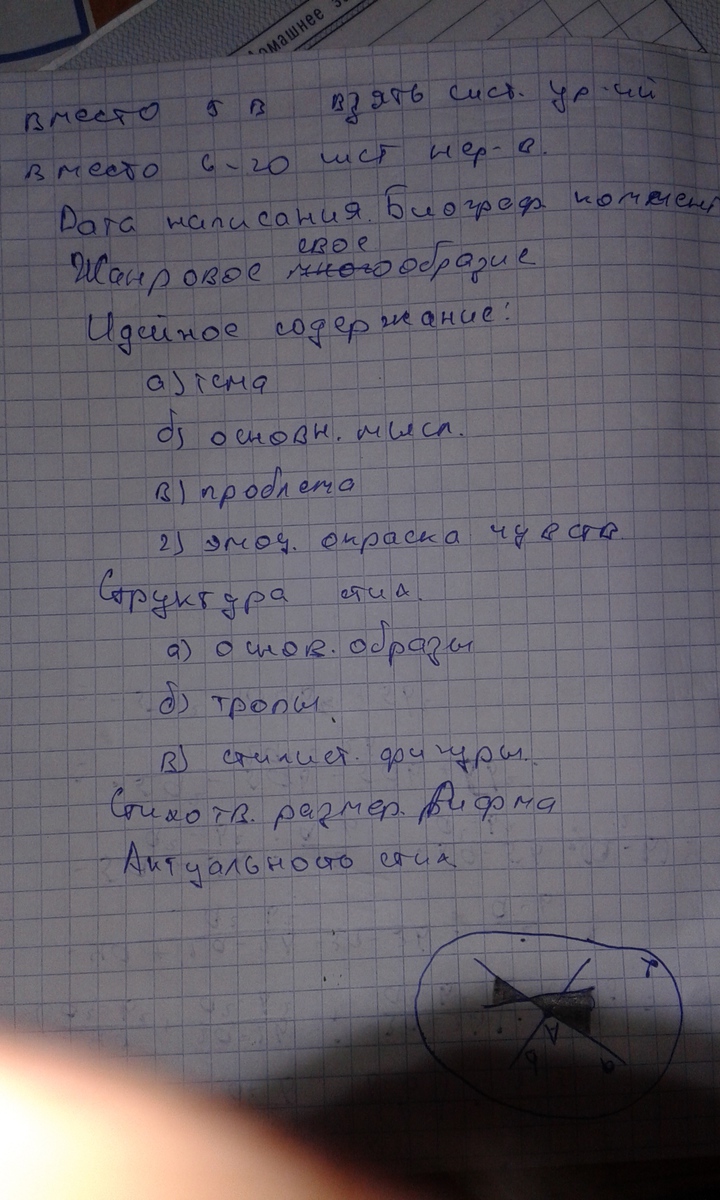 домашнее за
вместо 5 в взять сист. ур-ий
вместо 6-20 сист нер-в.
Дата написания. Биограф. коммент
свое
Жанровое многообразие
Идейное содержание:
а) тема
б) основн. мысл.
в) проблема
г) эмоц. окраска чувств
Структура стих.
а) основ. образы
б) тропы.
в) стилист. фигуры.
Стихотв. размер. Рифма
Актуальность стих
α
A
b
a